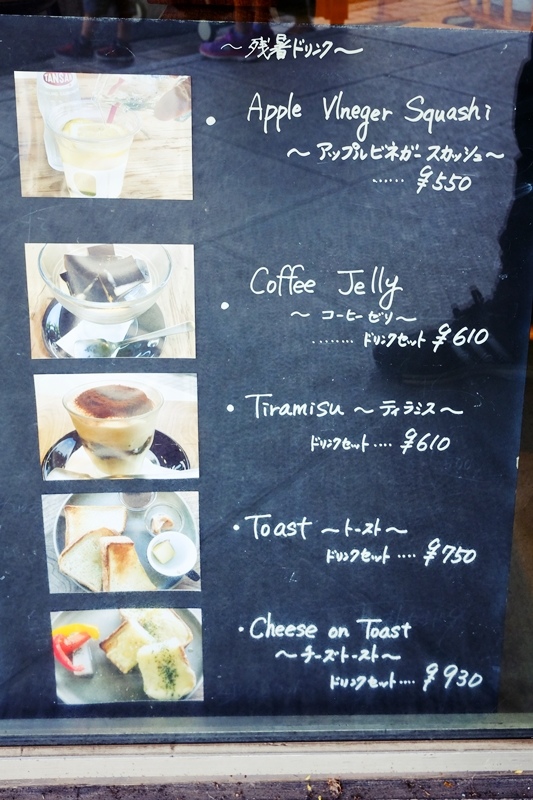 ～残暑ドリンク～
TANSAN
• Apple VIneger Squashi
～ アップルビネガースカッシュ～
...... ¥550
Coffee Jelly
• ～ コーヒーゼリー～
........ ドリンクセット ¥610
• Tiramisu ～ ティラミス ～
ドリンクセット .... ¥610
• Toast ～トースト～
ドリンクセット .... ¥750
• Cheese on Toast
～チーズトースト～
ドリンクセット .... ¥930